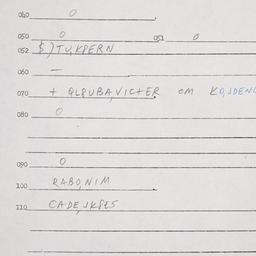 040 0
050 0 051 0
052 $)TU,KPERN
060 —
070 + QLPUBA,VICTER OM KO,JDENC
080 0
090 0
100 RABO,NIM
110 CADE,JKPES